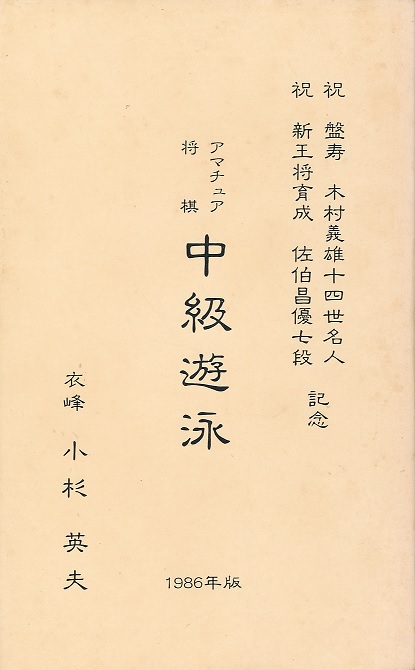 祝 盤寿 木村義雄十四世名人
祝 新王将育成 佐伯昌優七段
記念
アマチュア
将棋
中級遊泳
衣峰 小杉 英夫
1986年版